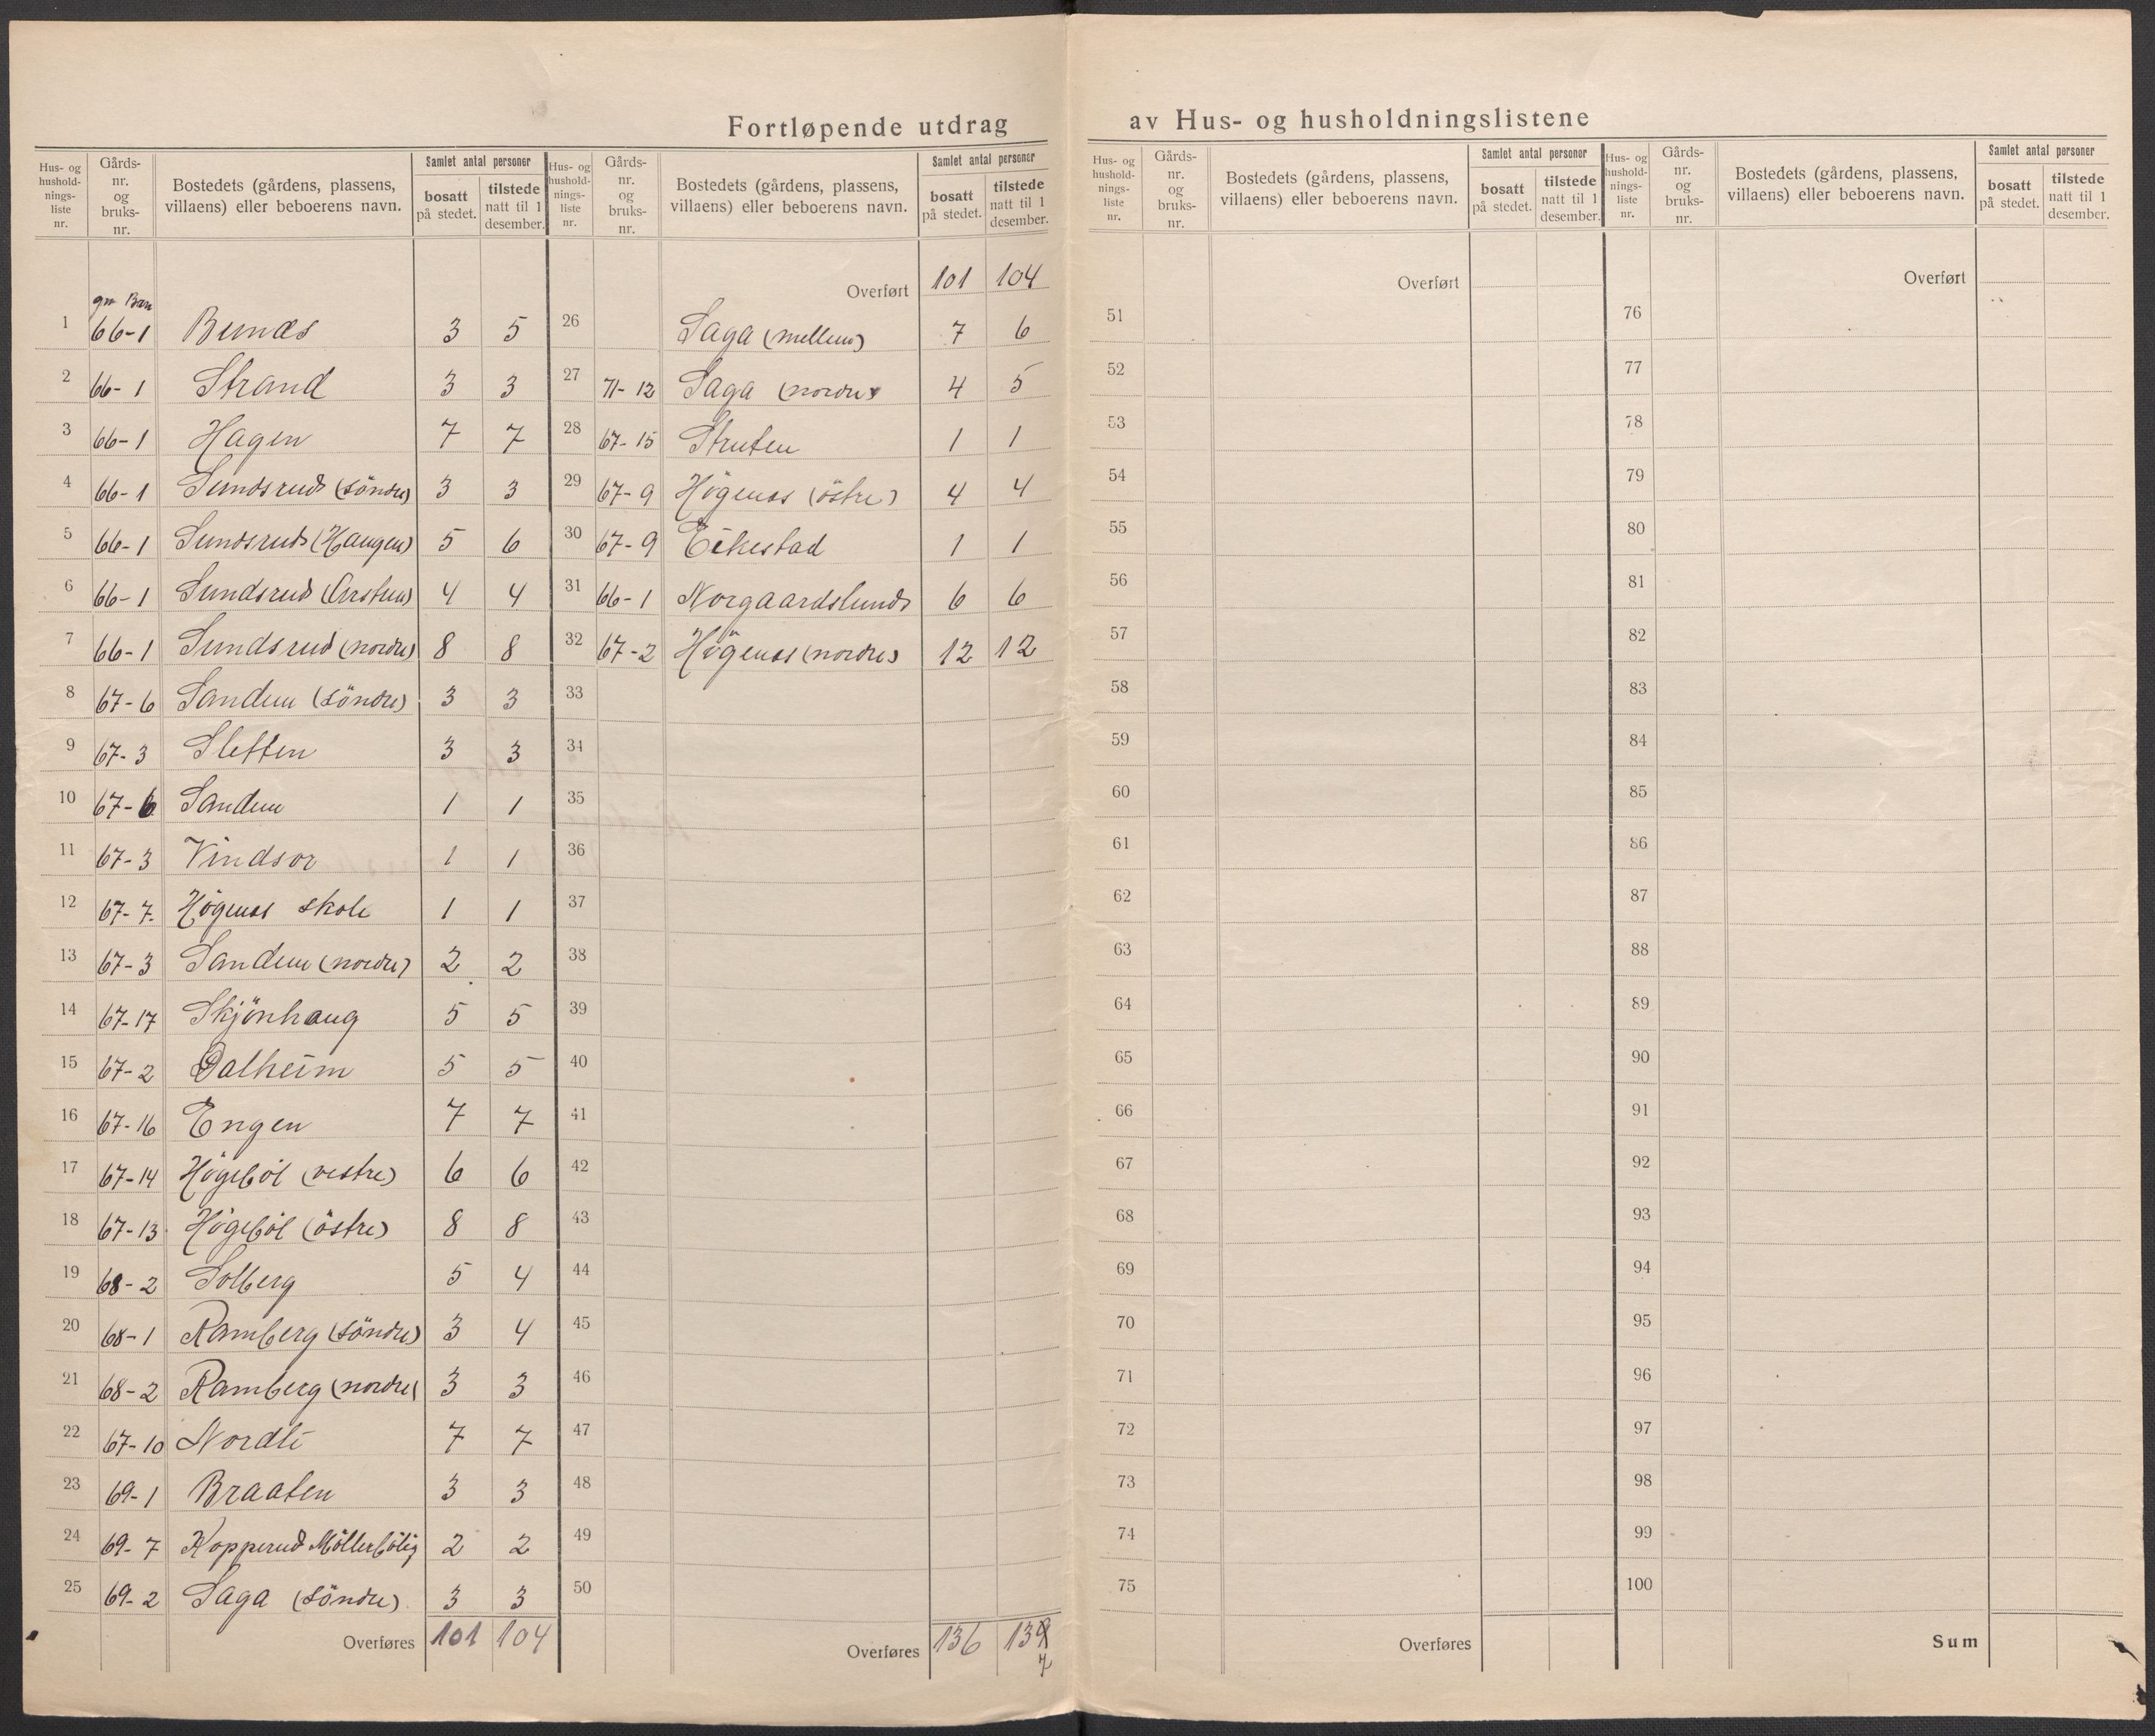 Fortløpende utdrag av Hus- og husholdningslistene
Hus- og husholdningsliste nr. Gårds-nr. og bruks-nr. Bostedets (gårdens, plassens, villaens) eller beboerens navn. Samlet antal personer bosatt på stedet. tilstede natt til 1 desember.
gnr Bnr
1 66-1 Bunæs 3 5
2 66-1 Strand 3 3
3 66-1 Hagen 7 7
4 66-1 Sundsrud (söndre) 3 3
5 66-1 Sundsrud (Haugen) 5 6
6 66-1 Sundsrud 4 4
7 66-1 Sundsrud (nordre) 8 8
8 67-6 Sandem (söndre) 3 3
9 67-3 Sletten 3 3
10 67-6 Sandem 1 1
11 67-3 Vindsor 1 1
12 67-7. Högenes skole 1 1
13 67-3 Sandem (nordre) 2 2
14 67-17 Skjönhaug 5 5
15 67-2 Dalheim 5 5
16 67-16 Engen 7 7
17 67-14 Högeböl (vestre) 6 6
18 67-13 Högeböl (östre) 8 8
19 68-2 Solberg 5 4
20 68-1 Ramberg (söndre) 3 4
21 68-2 Ramberg (nordre) 3 3
22 67-10 Nordli 7 7
23 69-1 Braaten 3 3
24 69-7 Kopperud Möllerbolig 2 2
25 69-2 Saga (söndre) 3 3
Overføres 101 104
Hus- og husholdningsliste nr. Gårds-nr. og bruks-nr. Bostedets (gårdens, plassens, villaens) eller beboerens navn. Samlet antal personer bosatt på stedet. tilstede natt til 1 desember.
Overført 101 104
26 Saga (mellem) 7 6
27 71-12 Saga (nordre) 4 5
28 67-15 Struten 1 1
29 67-9 Högenes (östre) 4 4
30 67-9 Eikestad 1 1
31 66-1 Norgaardslund 6 6
32 67-2 Högenes (nordre) 12 12
33
34
35
36
37
38
39
40
41
42
43
44
45
46
47
48
49
50
Overføres 136 139
7
Hus- og husholdningsliste nr. Gårds-nr. og bruks-nr. Bostedets (gårdens, plassens, villaens) eller beboerens navn. Samlet antal personer bosatt på stedet. tilstede natt til 1 desember.
Overført
51
52
53
54
55
56
57
58
59
60
61
62
63
64
65
66
67
68
69
70
71
72
73
74
75
Overføres
Hus- og husholdningsliste nr. Gårds-nr. og bruks-nr. Bostedets (gårdens, plassens, villaens) eller beboerens navn. Samlet antal personer bosatt på stedet. tilstede natt til 1 desember.
Overført
76
77
78
79
80
81
82
83
84
85
86
87
88
89
90
91
92
93
94
95
96
97
98
99
100
Sum